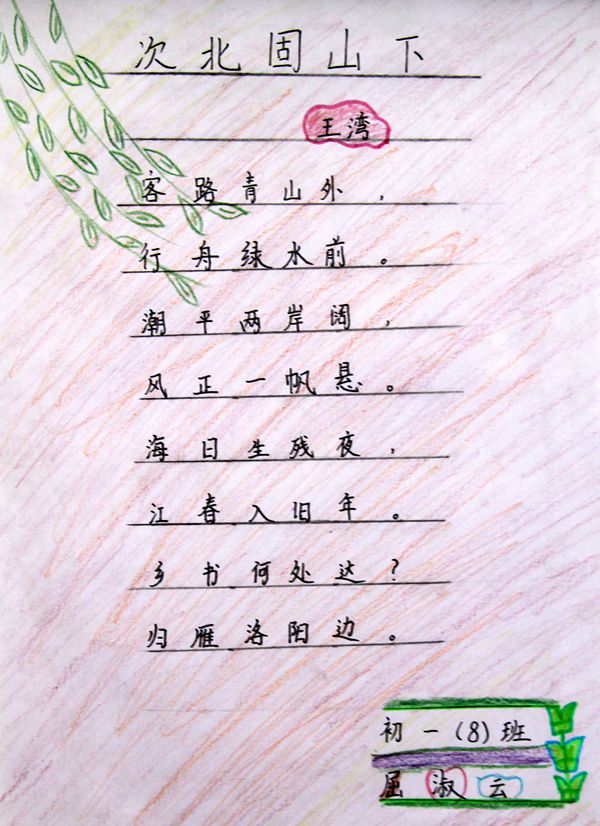 次北固山下
王湾
客路青山外，
行舟绿水前。
潮平两岸阔，
风正一帆悬。
海日生残夜，
江春入旧年。
乡书何处达？
归雁洛阳边。
初一(8)班
屈淑云